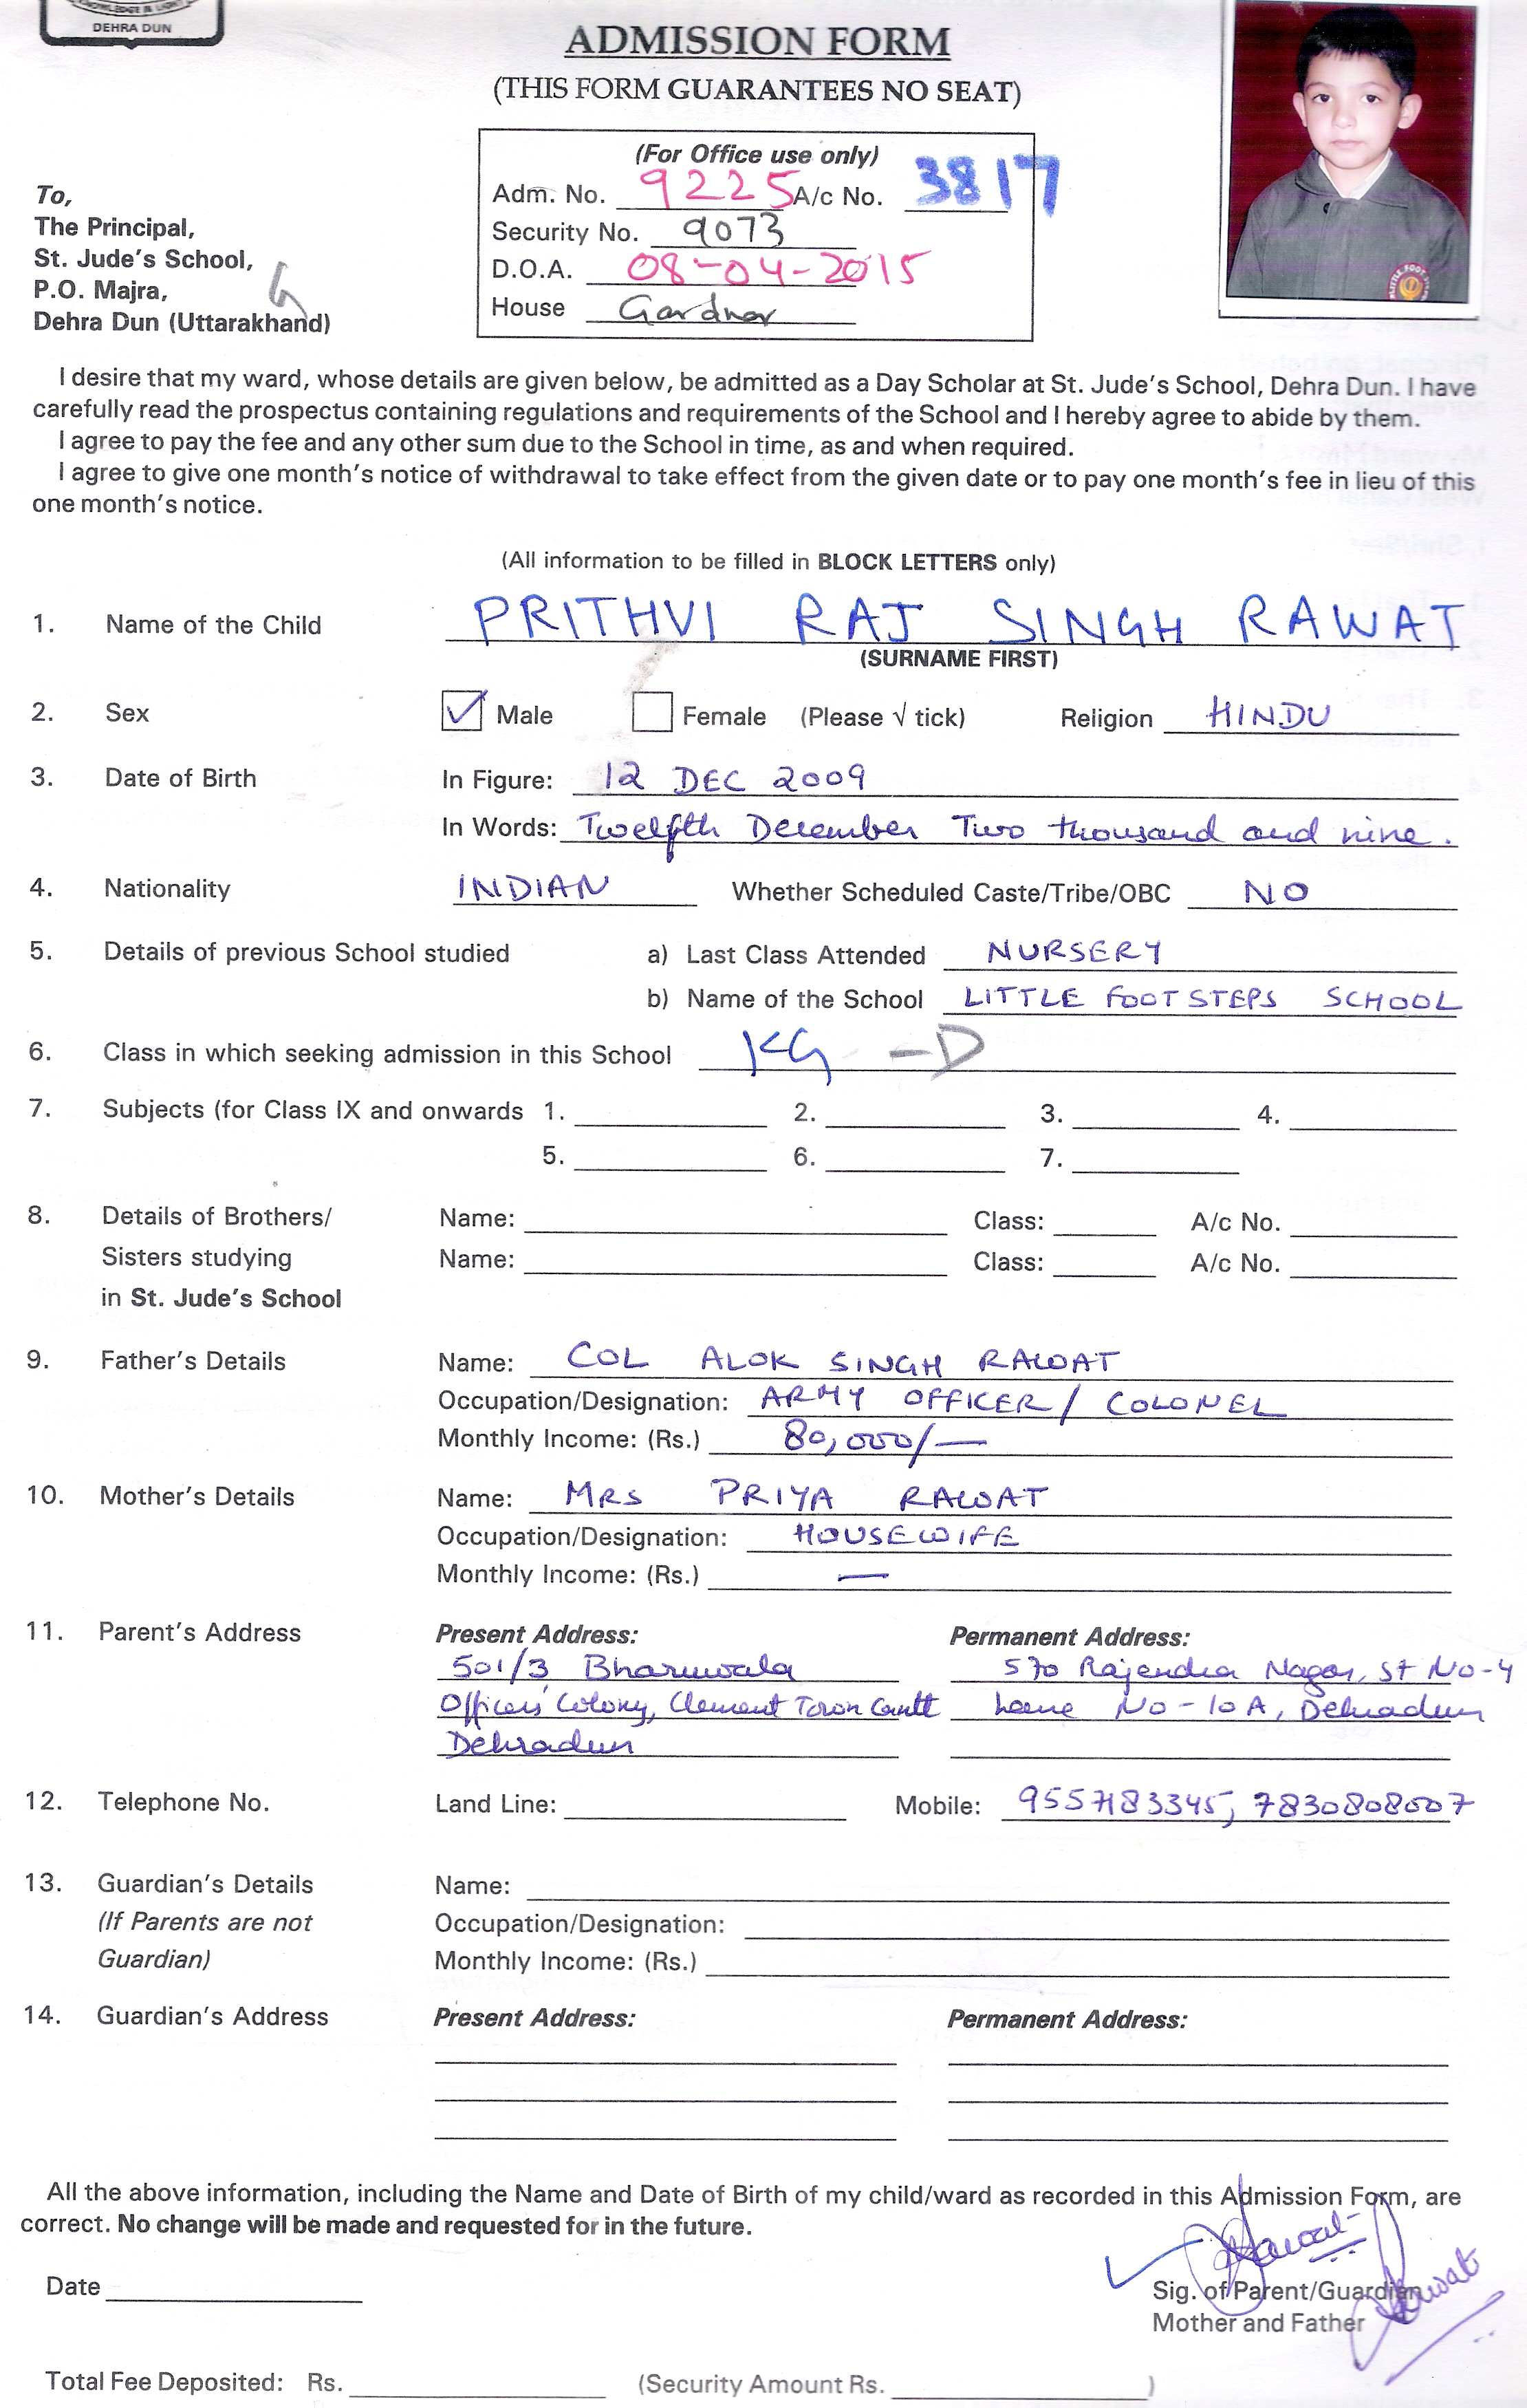 KNOWLEDGE IS LIGHT
DEHRA DUN
ADMISSION FORM
(THIS FORM GUARANTEES NO SEAT)
(For Office use only)
Adm. No. 9225 A/c No. 3817
Security No. 9073
D.O.A. 08-04-2015
House Gardner
To,
The Principal,
St. Jude's School,
P.O. Majra,
Dehra Dun (Uttarakhand)
G
I desire that my ward, whose details are given below, be admitted as a Day Scholar at St. Jude's School, Dehra Dun. I have
carefully read the prospectus containing regulations and requirements of the School and I hereby agree to abide by them.
I agree to pay the fee and any other sum due to the School in time, as and when required.
I agree to give one month's notice of withdrawal to take effect from the given date or to pay one month's fee in lieu of this
one month's notice.
(All information to be filled in BLOCK LETTERS only)
1. Name of the Child PRITHVI RAJ SINGH RAWAT
(SURNAME FIRST)
2. Sex ✓ Male Female (Please √ tick) Religion HINDU
3. Date of Birth In Figure: 12 DEC 2009
In Words: Twelfth December Two thousand and nine.
4. Nationality INDIAN Whether Scheduled Caste/Tribe/OBC NO
5. Details of previous School studied a) Last Class Attended NURSERY
b) Name of the School LITTLE FOOTSTEPS SCHOOL
6. Class in which seeking admission in this School KG - D
7. Subjects (for Class IX and onwards 1. 2. 3. 4.
5. 6. 7.
8. Details of Brothers/ Name: Class: A/c No.
Sisters studying Name: Class: A/c No.
in St. Jude's School
9. Father's Details Name: COL ALOK SINGH RAWAT
Occupation/Designation: ARMY OFFICER / COLONEL
Monthly Income: (Rs.) 80,000/-
10. Mother's Details Name: MRS PRIYA RAWAT
Occupation/Designation: HOUSEWIFE
Monthly Income: (Rs.) —
11. Parent's Address Present Address: Permanent Address:
501/3 Bharuwala 570 Rajendra Nagar, St No-4
Officers' Colony, Clement Town Cantt Lane No-10A, Dehradun
Dehradun
12. Telephone No. Land Line: Mobile: 9557183345, 7830808007
13. Guardian's Details Name:
(If Parents are not Occupation/Designation:
Guardian) Monthly Income: (Rs.)
14. Guardian's Address Present Address: Permanent Address:
All the above information, including the Name and Date of Birth of my child/ward as recorded in this Admission Form, are
correct. No change will be made and requested for in the future.
Date
Sig. of Parent/Guardian
Mother and Father
Total Fee Deposited: Rs. (Security Amount Rs. )